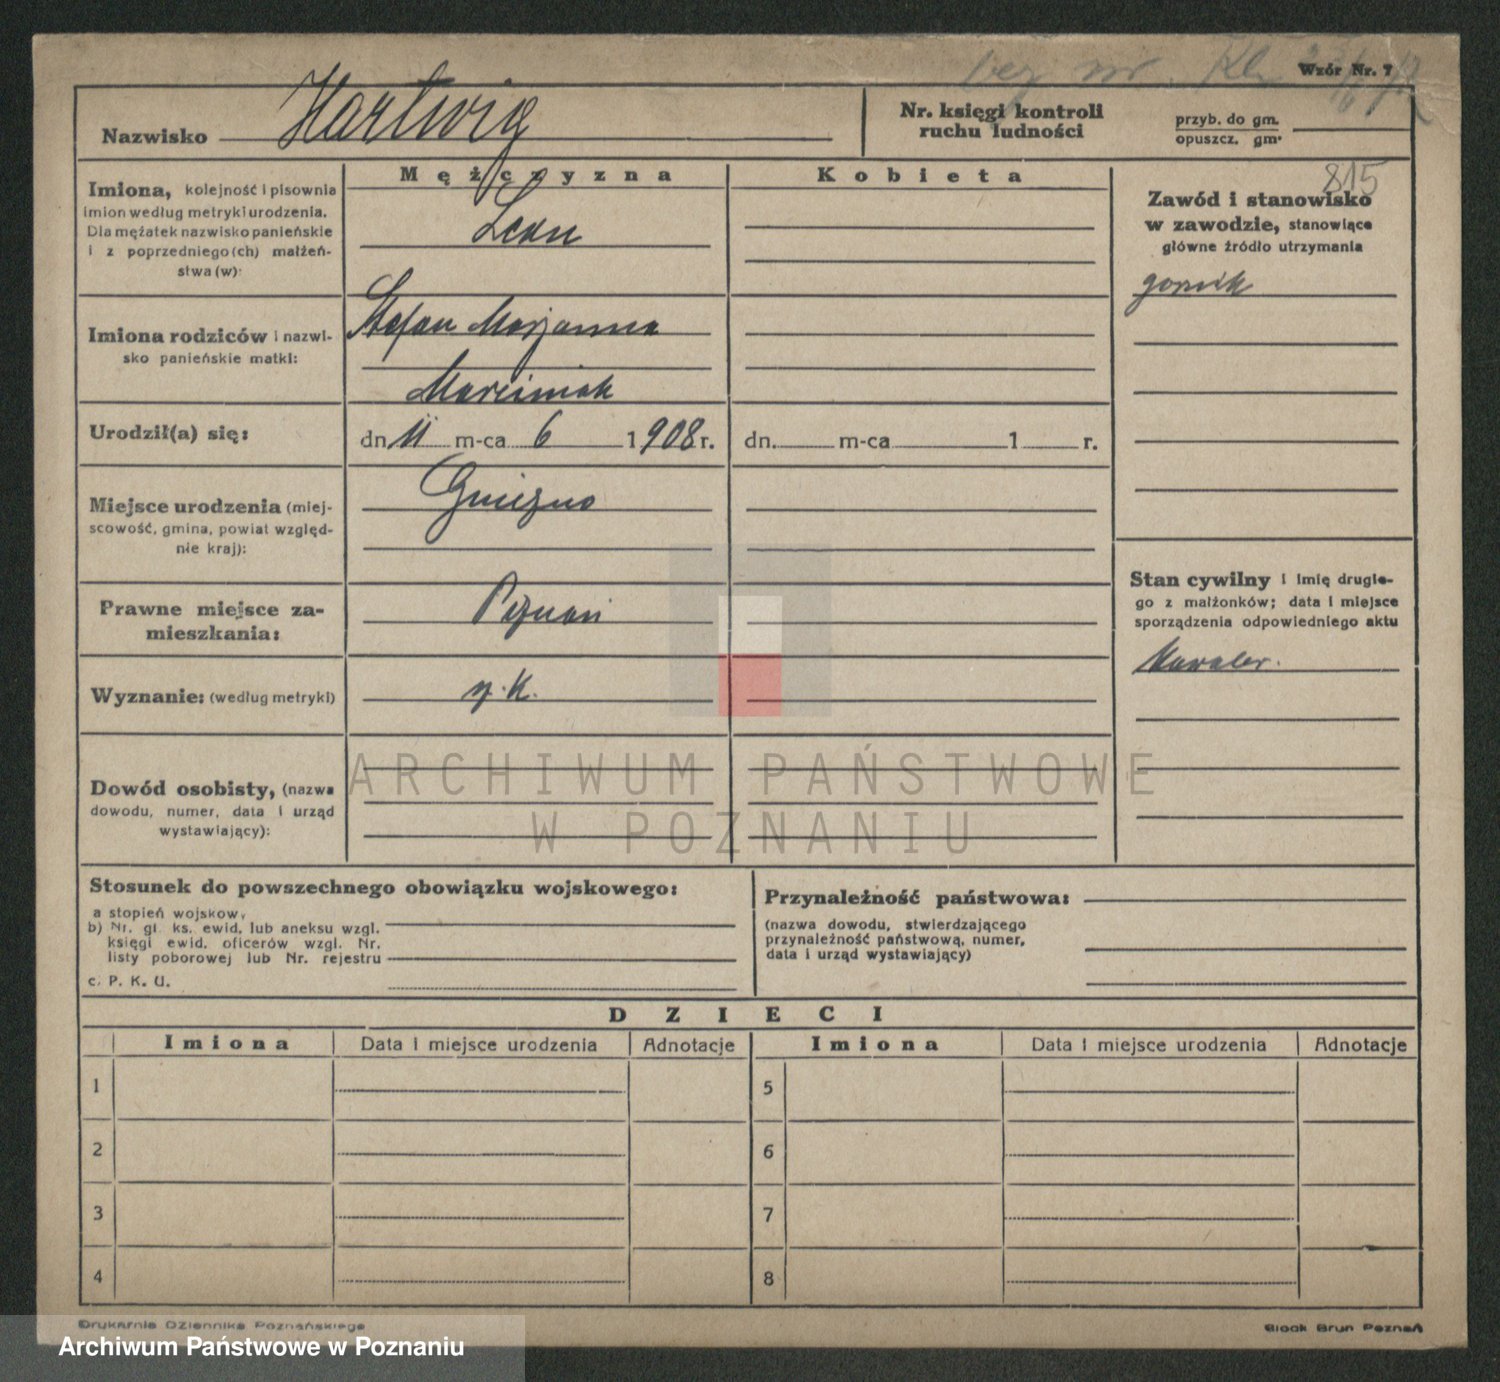 bez nr.
Wzór Nr. 7
Nazwisko Hartwig
Nr. księgi kontroli
ruchu ludności
przyb. do gm.
opuszcz. gm.
Mężczyzna
Kobieta
815
Imiona, kolejność i pisownia
imion według metryki urodzenia.
Dla mężatek nazwisko panieńskie
i z poprzedniego (ch) małżeń-
stwa (w):
Leon
Zawód i stanowisko
w zawodzie, stanowiące
główne źródło utrzymania
gornik
Imiona rodziców i nazwi-
sko panieńskie matki:
Stefan Marjanna
Marciniak
Urodził(a) się:
dn. 11 m-ca 6 1908 r.
dn. m-ca 1 r.
Miejsce urodzenia (miej-
scowość, gmina, powiat względ-
nie kraj):
Gniezno
Prawne miejsce za-
mieszkania:
Poznań
Stan cywilny i imię drugie-
go z małżonków; data i miejsce
sporządzenia odpowiedniego aktu
kawaler.
Wyznanie: (według metryki)
r. k.
Dowód osobisty, (nazwa
dowodu, numer, data i urząd
wystawiający):
ARCHIWUM PAŃSTWOWE
W POZNANIU
Stosunek do powszechnego obowiązku wojskowego:
a stopień wojskow,
b) Nr. gl. ks. ewid. lub aneksu wzgl.
księgi ewid. oficerów wzgl. Nr.
listy poborowej lub Nr. rejestru
c. P. K. U.
Przynależność państwowa:
(nazwa dowodu, stwierdzającego
przynależność państwową, numer,
data i urząd wystawiający)
DZIECI
Imiona Data i miejsce urodzenia Adnotacje Imiona Data i miejsce urodzenia Adnotacje
1 5
2 6
3 7
4 8
Drukarnia Dziennika Poznańskiego
Block Brun Poznań
Archiwum Państwowe w Poznaniu